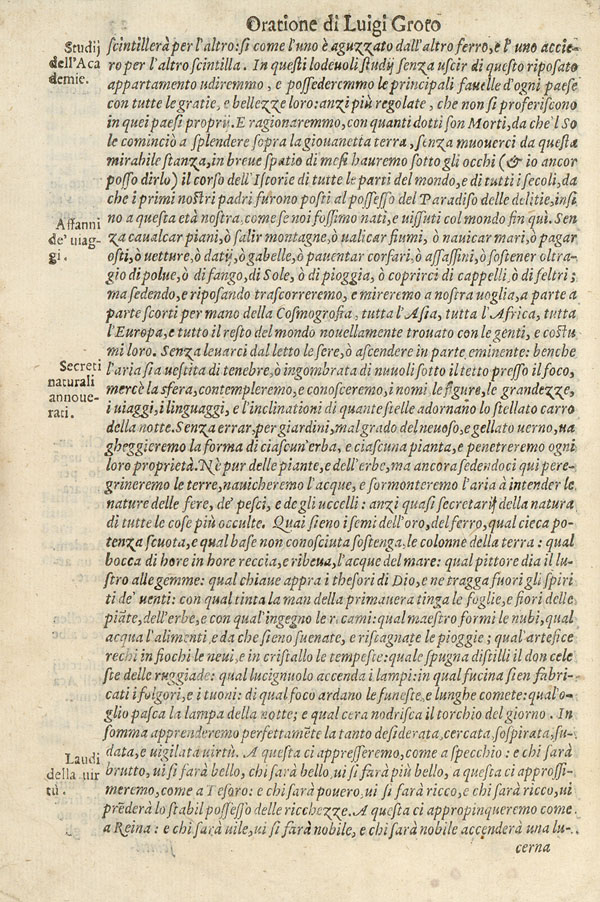 Oratione di Luigi Groto
Studij
dell'Aca
demie.
scintillerà per l'altro: si come l'uno è aguzzato dall'altro ferro, e l'uno accie-
ro per l'altro scintilla. In questi lodeuoli studij senza uscir di questo riposato
appartamento udiremmo, e possederemmo le principali fauelle d'ogni paese
con tutte le gratie, e bellezze loro: anzi più regolate, che non si proferiscono
in quei paesi proprij. E ragionaremmo, con quanti dotti son Morti, da che 'l So
le cominciò a splendere sopra la giouanetta terra, senza muouerci da questa
mirabile stanza, in breue spatio di mesi hauremo sotto gli occhi (& io ancor
posso dirlo) il corso dell'Istorie di tutte le parti del mondo, e di tutti i secoli, da
che i primi nostri padri furono posti al possesso del Paradiso delle delitie, insi
no a questa età nostra, come se noi fossimo nati, e uissuti col mondo fin quì. Sen
Affanni
de' uiag-
gi.
za caualcar piani, ò salir montagne, ò ualicar fiumi, ò nauicar mari, ò pagar
osti, ò uetture, ò datij, ò gabelle, ò pauentar corsari, ò assassini, ò sostener oltra-
gio di polue, ò di fango, di Sole, ò di pioggia, ò coprirci di cappelli, ò di feltri;
ma sedendo, e riposando trascorreremo, e mireremo a nostra uoglia, a parte a
parte scorti per mano della Cosmografia, tutta l'Asia, tutta l'Africa, tutta
l'Europa, e tutto il resto del mondo nouellamente trouato con le genti, e costu
mi loro. Senza leuarci dal letto le sere, ò ascendere in parte eminente: benche
Secreti
naturali
annoue-
rati.
l'aria sia uestita di tenebre, ò ingombrata di nuuoli sotto il tetto presso il foco,
mercè la sfera, contempleremo, e conosceremo, i nomi le figure, le grandezze,
i uiaggi, i linguaggi, e l'inclinationi di quante stelle adornano lo stellato carro
della notte. Senza errar, per giardini, mal grado del neuoso, e gellato uerno, ua
gheggieremo la forma di ciascun'erba, e ciascuna pianta, e penetreremo ogni
loro proprietà. Nè pur delle piante, e dell'erbe, ma ancora sedendoci qui pere-
grineremo le terre, nauicheremo l'acque, e sormonteremo l'aria à intender le
nature delle fere, de' pesci, e degli uccelli: anzi quasi secretarij della natura
di tutte le cose più occulte. Quai sieno i semi dell'oro, del ferro, qual cieca po-
tenza scuota, e qual base non conosciuta sostenga, le colonne della terra: qual
bocca di hore in hore reccia, e ribeua, l'acque del mare: qual pittore dia il lu-
stro alle gemme: qual chiaue appra i thesori di Dio, e ne tragga fuori gli spiri
ti de' uenti: con qual tinta la man della primauera tinga le foglie, e fiori delle
piāte, dell'erbe, e con qual'ingegno le ricami: qual maestro formi le nubi, qual
acqua l'alimenti, e da che sieno suenate, e ristagnate le pioggie; qual artefice
rechi in fiochi le neui, e in cristallo le tempeste: quale spugna distilli il don cele
ste delle ruggiade: qual lucignuolo accenda i lampi: in qual fucina sien fabri-
cati i folgori, e i tuoni: di qual foco ardano le funeste, e lunghe comete: qual'o-
glio pasca la lampa della notte; e qual cera nodrisca il torchio del giorno. In
somma apprenderemo perfettamēte la tanto desiderata, cercata, sospirata, su-
Laudi
della uir
tù.
data, e uigilata uirtù. A questa ci appresseremo, come a specchio: e chi sarà
brutto, ui si farà bello, chi sarà bello, ui si farà più bello, a questa ci approssi-
meremo, come a Tesoro: e chi sarà pouero, ui si farà ricco, e chi sarà ricco, ui
prēderà lo stabil possesso delle ricchezze. A questa ci appropinqueremo come
a Reina: e chi sarà uile, ui si farà nobile, e chi sarà nobile accenderà una lu-
cerna